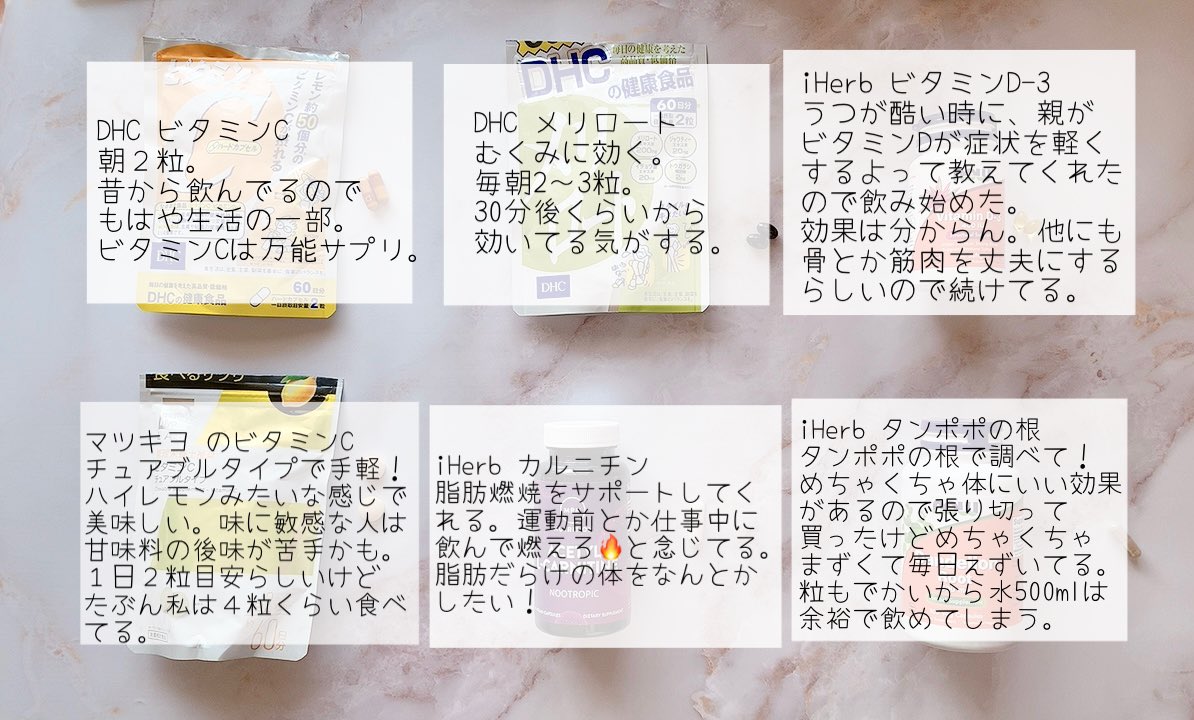 DHC ビタミンC
朝２粒。
昔から飲んでるので
もはや生活の一部。
ビタミンCは万能サプリ。
DHCの健康食品
60日分
DHC メリロート
むくみに効く。
毎朝2〜3粒。
30分後くらいから
効いてる気がする。
DHC
の健康食品
60日分
DHC
iHerb ビタミンD-3
うつが酷い時に、親が
ビタミンDが症状を軽く
するよって教えてくれた
ので飲み始めた。
効果は分からん。他にも
骨とか筋肉を丈夫にする
らしいので続けてる。
マツキヨ のビタミンC
チュアブルタイプで手軽！
ハイレモンみたいな感じで
美味しい。味に敏感な人は
甘味料の後味が苦手かも。
１日２粒目安らしいけど
たぶん私は４粒くらい食べ
てる。
60日分
iHerb カルニチン
脂肪燃焼をサポートしてく
れる。運動前とか仕事中に
飲んで燃える🔥と念じてる。
脂肪だらけの体をなんとか
したい！
NOOTROPIC
iHerb タンポポの根
タンポポの根で調べて！
めちゃくちゃ体にいい効果
があるので張り切って
買ったけどめちゃくちゃ
まずくて毎日えずいてる。
粒もでかいから水500mlは
余裕で飲めてしまう。